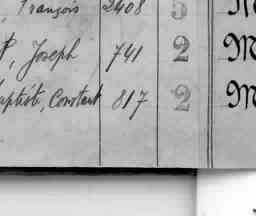 François 2408 5 M
, Joseph 741 2 M
aptiste, Constant 817 2 M